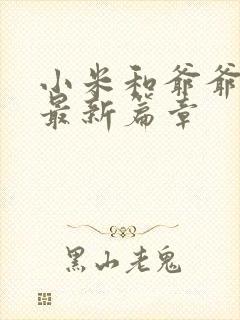 小米和爷爷
最新篇章
黑山老鬼